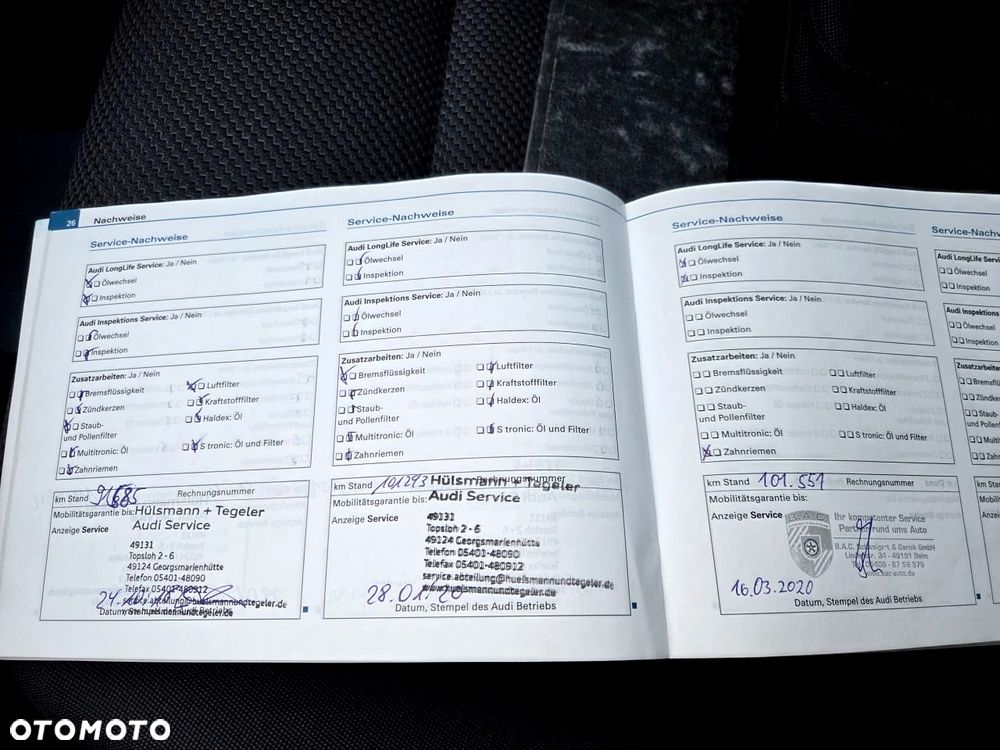 26 Nachweise
Service-Nachweise
Audi LongLife Service: Ja / Nein
Ölwechsel
Inspektion
Audi Inspektions Service: Ja / Nein
Ölwechsel
Inspektion
Zusatzarbeiten: Ja / Nein
Bremsflüssigkeit
Luftfilter
Zündkerzen
Kraftstofffilter
Staub-
und Pollenfilter
Haldex: Öl
Multitronic: Öl
S tronic: Öl und Filter
Zahnriemen
km Stand 91685 Rechnungsnummer
Mobilitätsgarantie bis:
Hülsmann + Tegeler
Anzeige Service
Audi Service
49131
Topsloh 2 - 6
49124 Georgsmarienhütte
Telefon 05401-48090
Telefax 05401-480912
service.abteilung@huelsmannundtegeler.de
www.huelsmannundtegeler.de
Service-Nachweise
Audi LongLife Service: Ja / Nein
Ölwechsel
Inspektion
Audi Inspektions Service: Ja / Nein
Ölwechsel
Inspektion
Zusatzarbeiten: Ja / Nein
Bremsflüssigkeit
Luftfilter
Zündkerzen
Kraftstofffilter
Staub-
und Pollenfilter
Haldex: Öl
Multitronic: Öl
S tronic: Öl und Filter
Zahnriemen
km Stand 101293 Rechnungsnummer
Mobilitätsgarantie bis:
Hülsmann + Tegeler
Anzeige Service
Audi Service
49131
Topsloh 2 - 6
49124 Georgsmarienhütte
Telefon 05401-48090
Telefax 05401-480912
service.abteilung@huelsmannundtegeler.de
www.huelsmannundtegeler.de
28.01.20
Datum, Stempel des Audi Betriebs
Service-Nachweise
Audi LongLife Service: Ja / Nein
Ölwechsel
Inspektion
Audi Inspektions Service: Ja / Nein
Ölwechsel
Inspektion
Zusatzarbeiten: Ja / Nein
Bremsflüssigkeit
Luftfilter
Zündkerzen
Kraftstofffilter
Staub-
und Pollenfilter
Haldex: Öl
Multitronic: Öl
S tronic: Öl und Filter
Zahnriemen
km Stand 101.551 Rechnungsnummer
Mobilitätsgarantie bis:
Anzeige Service
Ihr kompetenter Service
Partner rund ums Auto
16.03.2020
Datum, Stempel des Audi Betriebs
Service-Nachw
Audi LongLife Servi
Ölwechsel
Inspektion
Audi Inspektions
Ölwechsel
Inspektion
Zusatzarbeiten
OTOMOTO